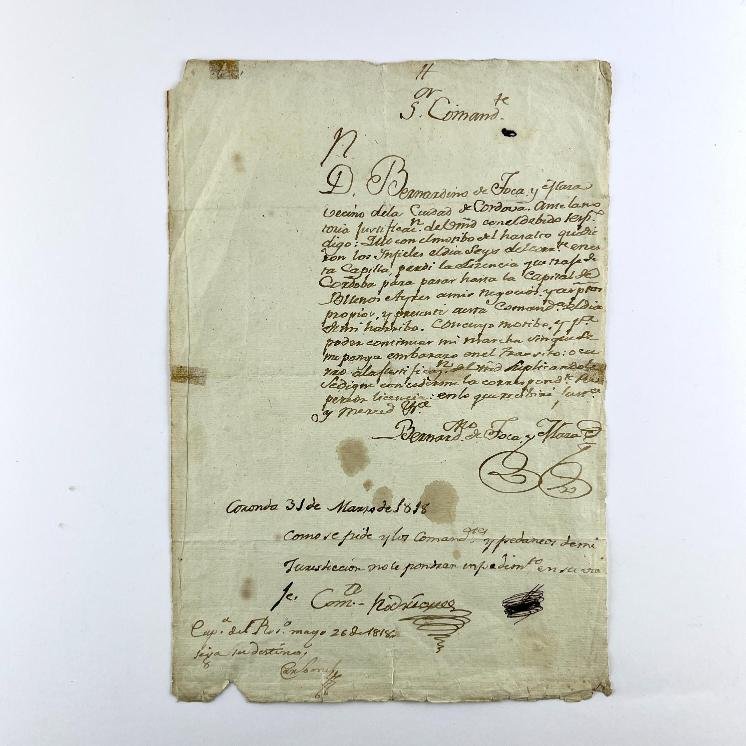 S.or Comand.te
D. Bernardino de Toca, y Mara
vecino dela Ciudad de Cordova. Ante la no
toria justificac.n del Vmd con el debido
digo: Que con el motibo del haralto que die
ron los Infieles el dia Seys del corr.te en es
ta Capilla, perdi la lisencia que traje de
Cordoba para pasar hasta la Capital de
Buenos Ayres a mis negocios
propios, y presenté a esta Comand.a el dia
de mi harribo. Con cuyo motibo, y p.a
poder continuar mi marcha sin que se
me ponga embarazo en el transito: ocu
rro à la justificaz.n del Vmd suplicandole
se digne concederme la correspond.te
lisencia: en lo que resibiré
y merced V.a
Bernard.no de Toca, y Mara
Coronda 31 de Marzo de 1818
Como se pide y los Comand.tes y pedaneos de mi
Jurisdiccion no le pondran inpedim.to en su via
je. Com.te Rodriguez
Cap.a del Ros.o mayo 26 de 1818
siga su destino,